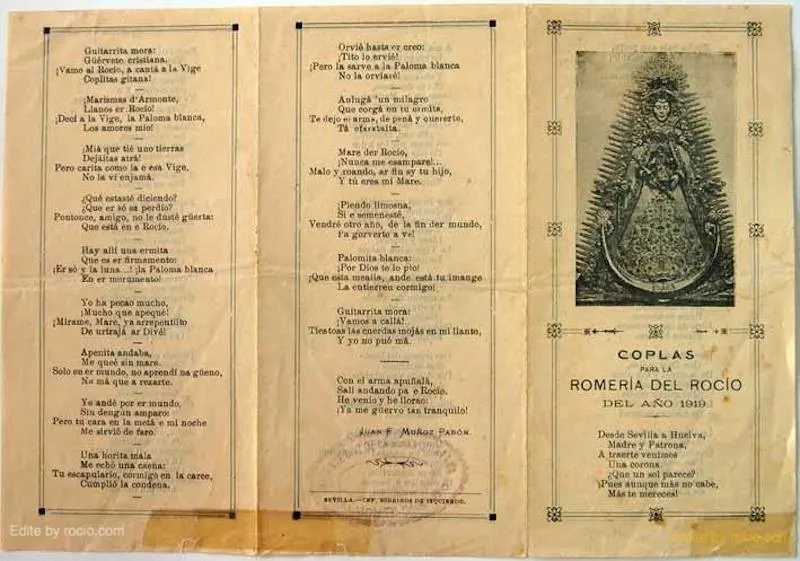 Guitarrita mora:
Güérvete cristiana.
¡Vamo al Rocío, a cantá a la Vige
Coplitas gitana!
¡Marismas d'Armonte,
Llanos er Rocío!
¡Decí a la Vige, la Paloma blanca,
Los amores mío!
¡Miá que tié uno tierras
Dejáitas atrá!
Pero carita como la e esa Vige,
No la ví enjamá.
¿Qué estasté diciendo?
¿Que er só sa perdío?
Pontonce, amigo, no le dusté güerta:
Que está en e Rocío.
Hay allí una ermita
Que es er firmamento:
¡Er só y la luna...! ¡la Paloma blanca
En er monumento!
Yo ha pecao mucho,
¡Mucho que apequé!
¡Mírame, Mare, ya arrepentito
De urtrajá ar Divé!
Apenita andaba,
Me queé sin mare.
Solo en er mundo, no aprendí na güeno,
Na má que a rezarte.
Yo andé por er mundo,
Sin dengún amparo:
Pero tu cara en la metá e mi noche
Me sirvió de faro.
Una horita mala
Me echó una caena:
Tu escapulario, cormigo en la carce,
Cumplió la condena.
Orvié hasta er creo:
¡Tito lo orvié!
¡Pero la sarve a la Paloma blanca
No la orviaré!
Anlugá 'un milagro
Que corgá en tu ermita,
Te dejo el arma, de pená y quererte,
Tá
Mare der Rocío,
¡Nunca me esampare!...
Malo y roando, ar fin sy tu hijo,
Y tú eres mi Mare.
¡Piendo limosna,
Si e semenesté,
Vendré otro año, de la fin der mundo,
Pa gorverte a ve!
Palomita blanca:
¡Por Dios te lo pío!
¡Que esta mealla, ande está tu imange
La entierren cormigo!
Guitarrita mora:
¡Vamos a callá!.
Ties toas las cuerdas mojás en mi llanto,
Y yo no pué má.
Con el arma apuñalá,
Salí andando pa e Rocío.
He venío y he llorao:
¡Ya me güervo tan tranquilo!
JUAN F. MUÑOZ PABÓN.
SEVILLA.—IMP. SOBRINOS DE IZQUIERDO.
COPLAS
PARA LA
ROMERÍA DEL ROCÍO
DEL AÑO 1919.
Desde Sevilla a Huelva,
Madre y Patrona,
A traerte venimos
Una corona.
¿Que un sol parece?
¡Pues aunque más no cabe,
Más te mereces!
Edite by rocio.com